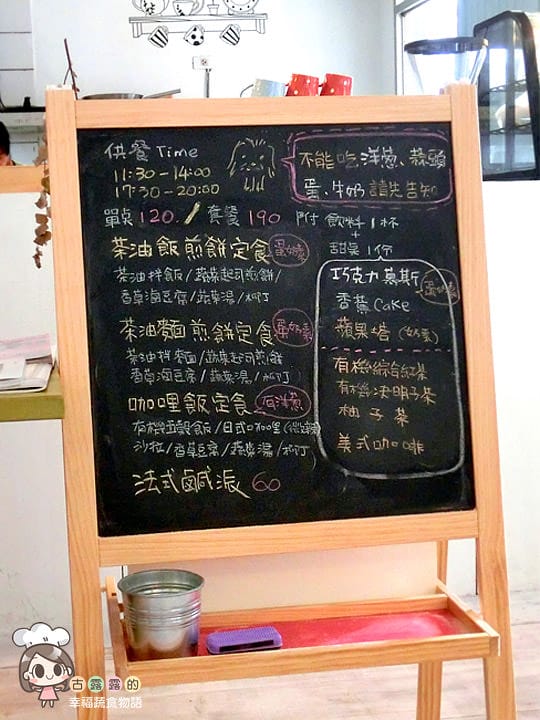 供餐 Time
11:30-14:00
17:30-20:00
不能吃洋葱、蒜頭
蛋、牛奶 請先告知
單桌 120./ 套餐 190 附 飲料1杯
+
甜点1份
茶油飯煎餅定食 蛋奶素
茶油拌飯/蔬菜起司煎餅/
香草滷豆腐/蔬菜湯/水叮
茶油麵煎餅定食 蛋奶素
茶油拌麵/蔬菜起司煎餅
香草滷豆腐/蔬菜湯/水叮
咖哩飯定食 有洋葱
有機五穀飯/日式咖哩(微辣)
沙拉/香草豆腐/蔬菜湯/水叮
法式鹹派 60
巧克力慕斯 蛋奶素
香蕉 Cake
蘋果塔 (奶素)
有機綜合紅茶
有機決明子茶
柚子茶
美式咖啡
古露露的
幸福蔬食物語